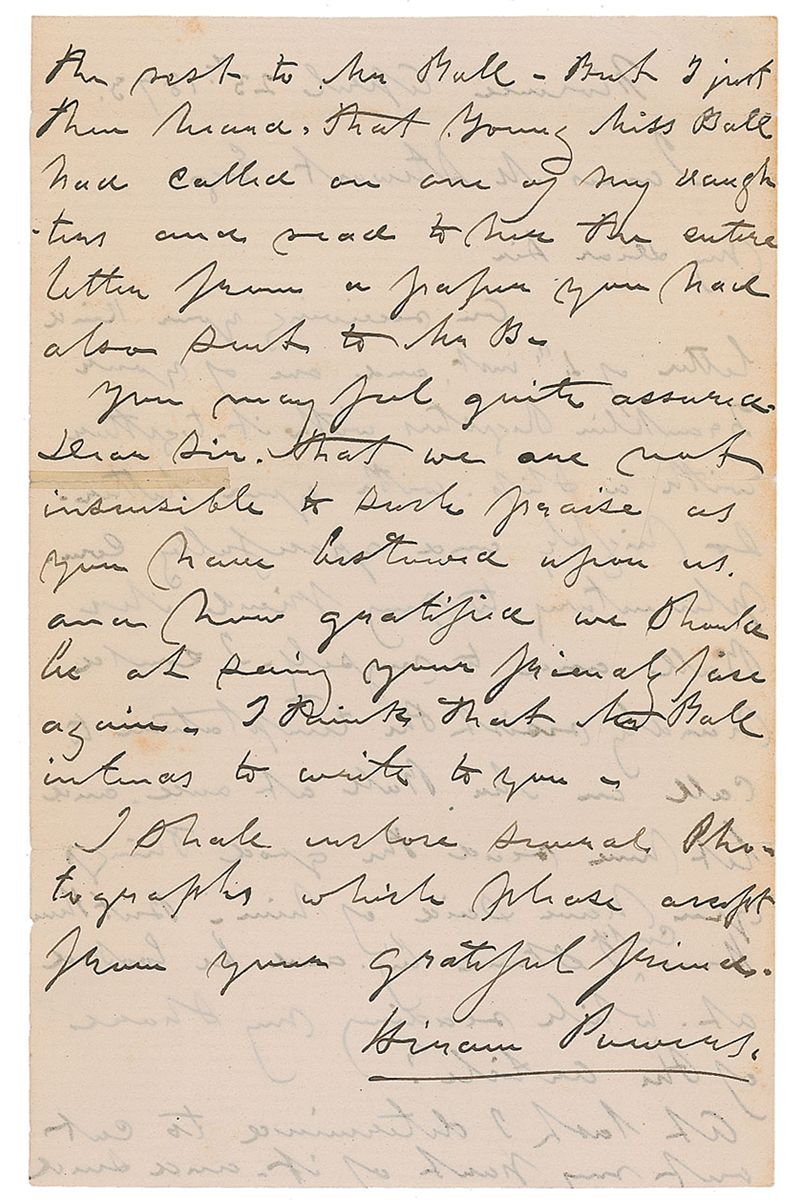 the rest to Mr Ball - But I just
then heard, that Young Miss Ball
had called on one of my daugh
-ters and read to her the entire
letter from a paper you had
also sent to Mr B-
You may feel quite assured
Dear Sir. that we are not
insensible to such praise as
you have bestowed upon us.
and how gratified we should
be at seeing your friendly face
again. I think that Mr Ball
intends to write to you -
I shall inclose several Pho-
tographs which please accept
from your grateful friend.
Hiram Powers.